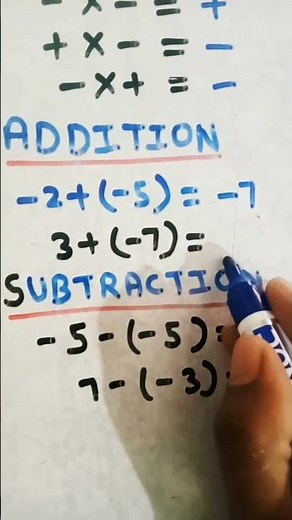 - x - = +
+ x - = -
- x + = -
ADDITION
-2 + (-5) = -7
3 + (-7) =
SUBTRACTIO
-5 - (-5) =
7 - (-3) =